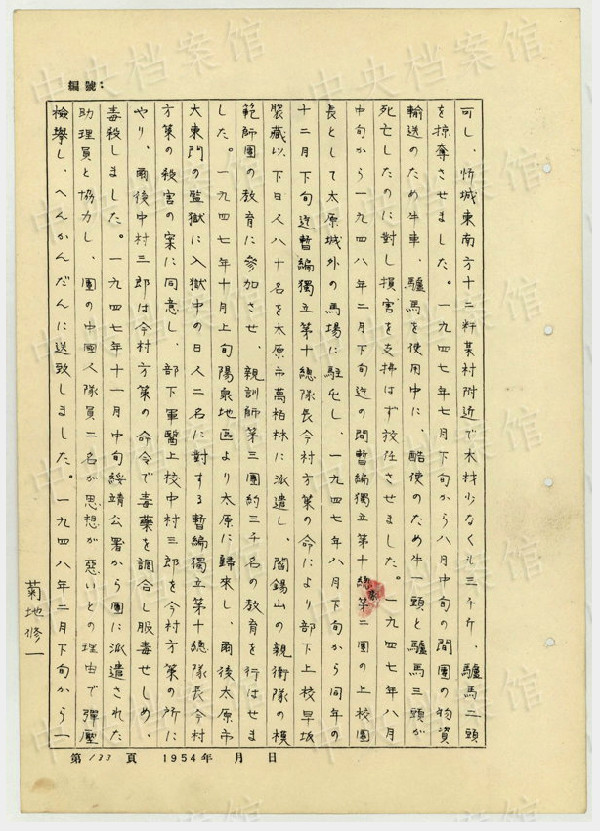 編號:
可し、忻城東南方十二粁某村附近で木材少なくも三千斤、驢馬二頭
を掠奪させました。一九四七年七月下旬から八月中旬の間團の物資
輸送のため牛車、驢馬を使用中に、酷使のため牛一頭と驢馬三頭が
死亡したのに対し損害を支拂はず放任させました。一九四七年八月
中旬から一九四八年二月下旬迄の間暫編獨立第十總隊第二團の上校團
長として太原城外の馬場に駐屯し、一九四七年八月下旬から同年の
十二月下旬迄暫編獨立第十總隊長今村方策の命により部下上校早坂
䙥藏以下日人八十名を太原市萬柏林に派遣し、閻錫山の親衛隊の模
範師團の教育に参加させ、親訓師第三團約二千名の教育を行はせま
した。一九四七年十月上旬陽泉地区より太原に歸来し、爾後太原市
大東門の監獄に入獄中の日人二名に対する暫編獨立第十總隊長今村
方策の殺害の案に同意し、部下軍醫上校中村三郎を今村方策の所に
やり、爾後中村三郎は今村方策の命令で毒藥を調合し服毒せしめ、
毒殺しました。一九四七年十一月中旬綏靖公署から團に派遣された
助理員と協力し、團の中國人隊員一名が思想が惡いとの理由で彈壓
檢舉し、へんかんだんに送致しました。一九四八年二月下旬から一
菊地修一
第133頁 1954年 月 日
中央档案馆